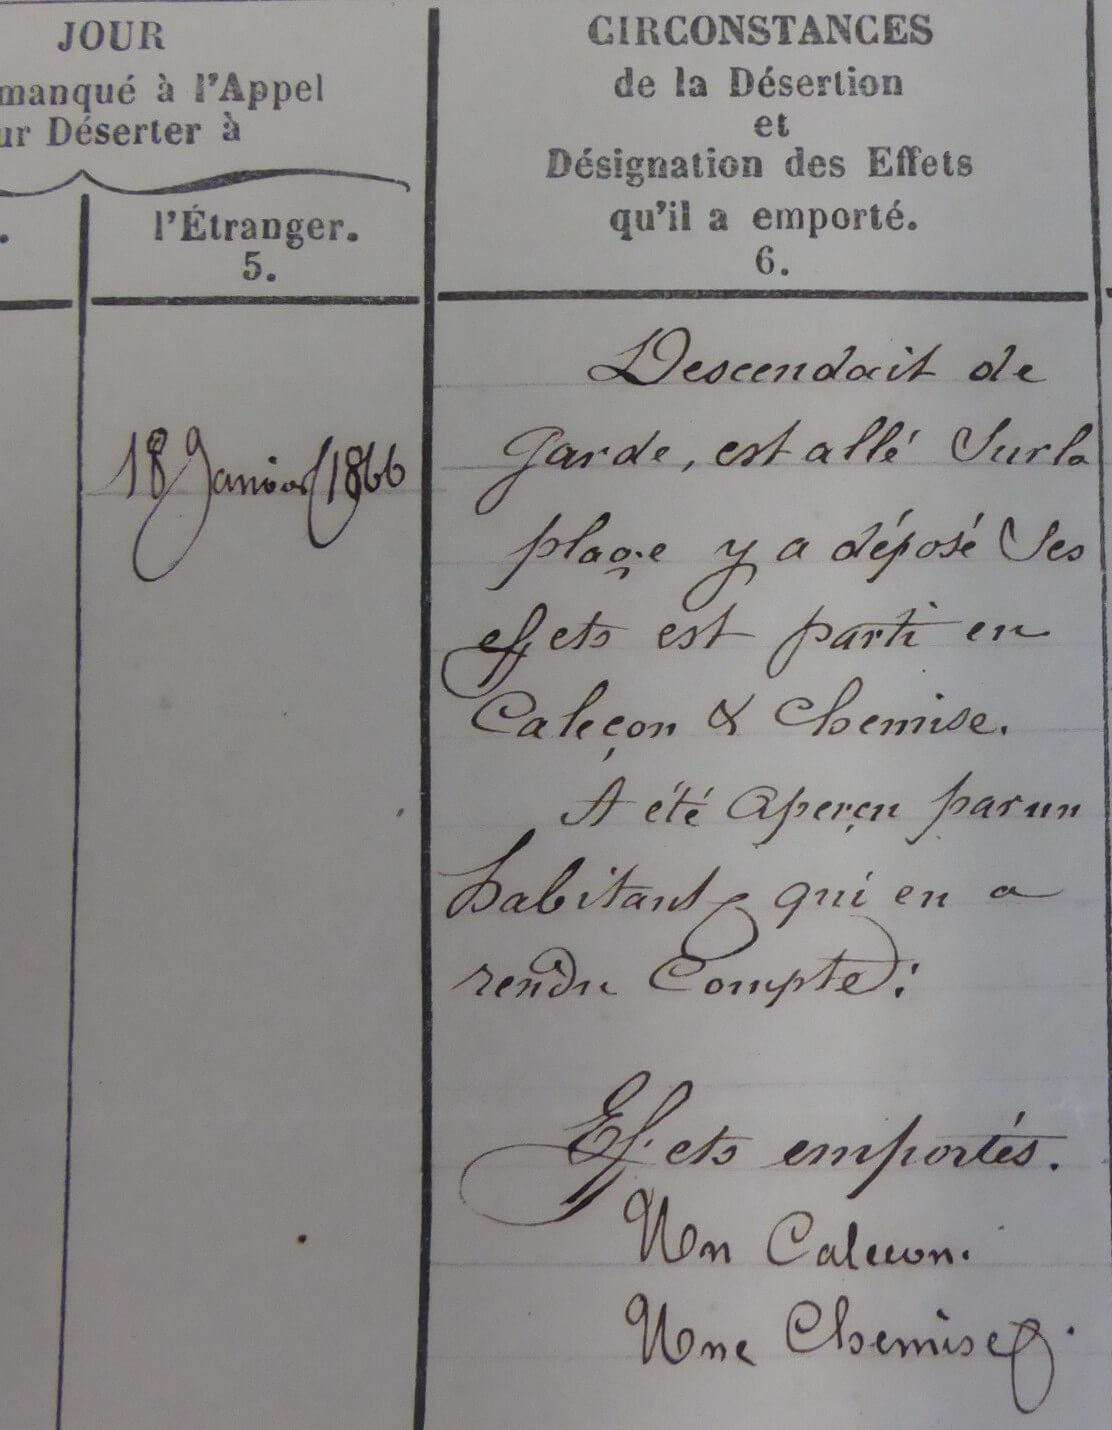 JOUR
manqué à l'Appel
ur Déserter à
l'Étranger.
5.
18 Janvier 1866
CIRCONSTANCES
de la Désertion
et
Désignation des Effets
qu'il a emporté.
6.
Descendait de
garde, est allé sur la
plage y a déposé ses
effets est parti en
Caleçon & Chemise.
A été aperçu par un
habitant qui en a
rendu Compte.
Effets emportés.
Un Calecon.
Une Chemise.